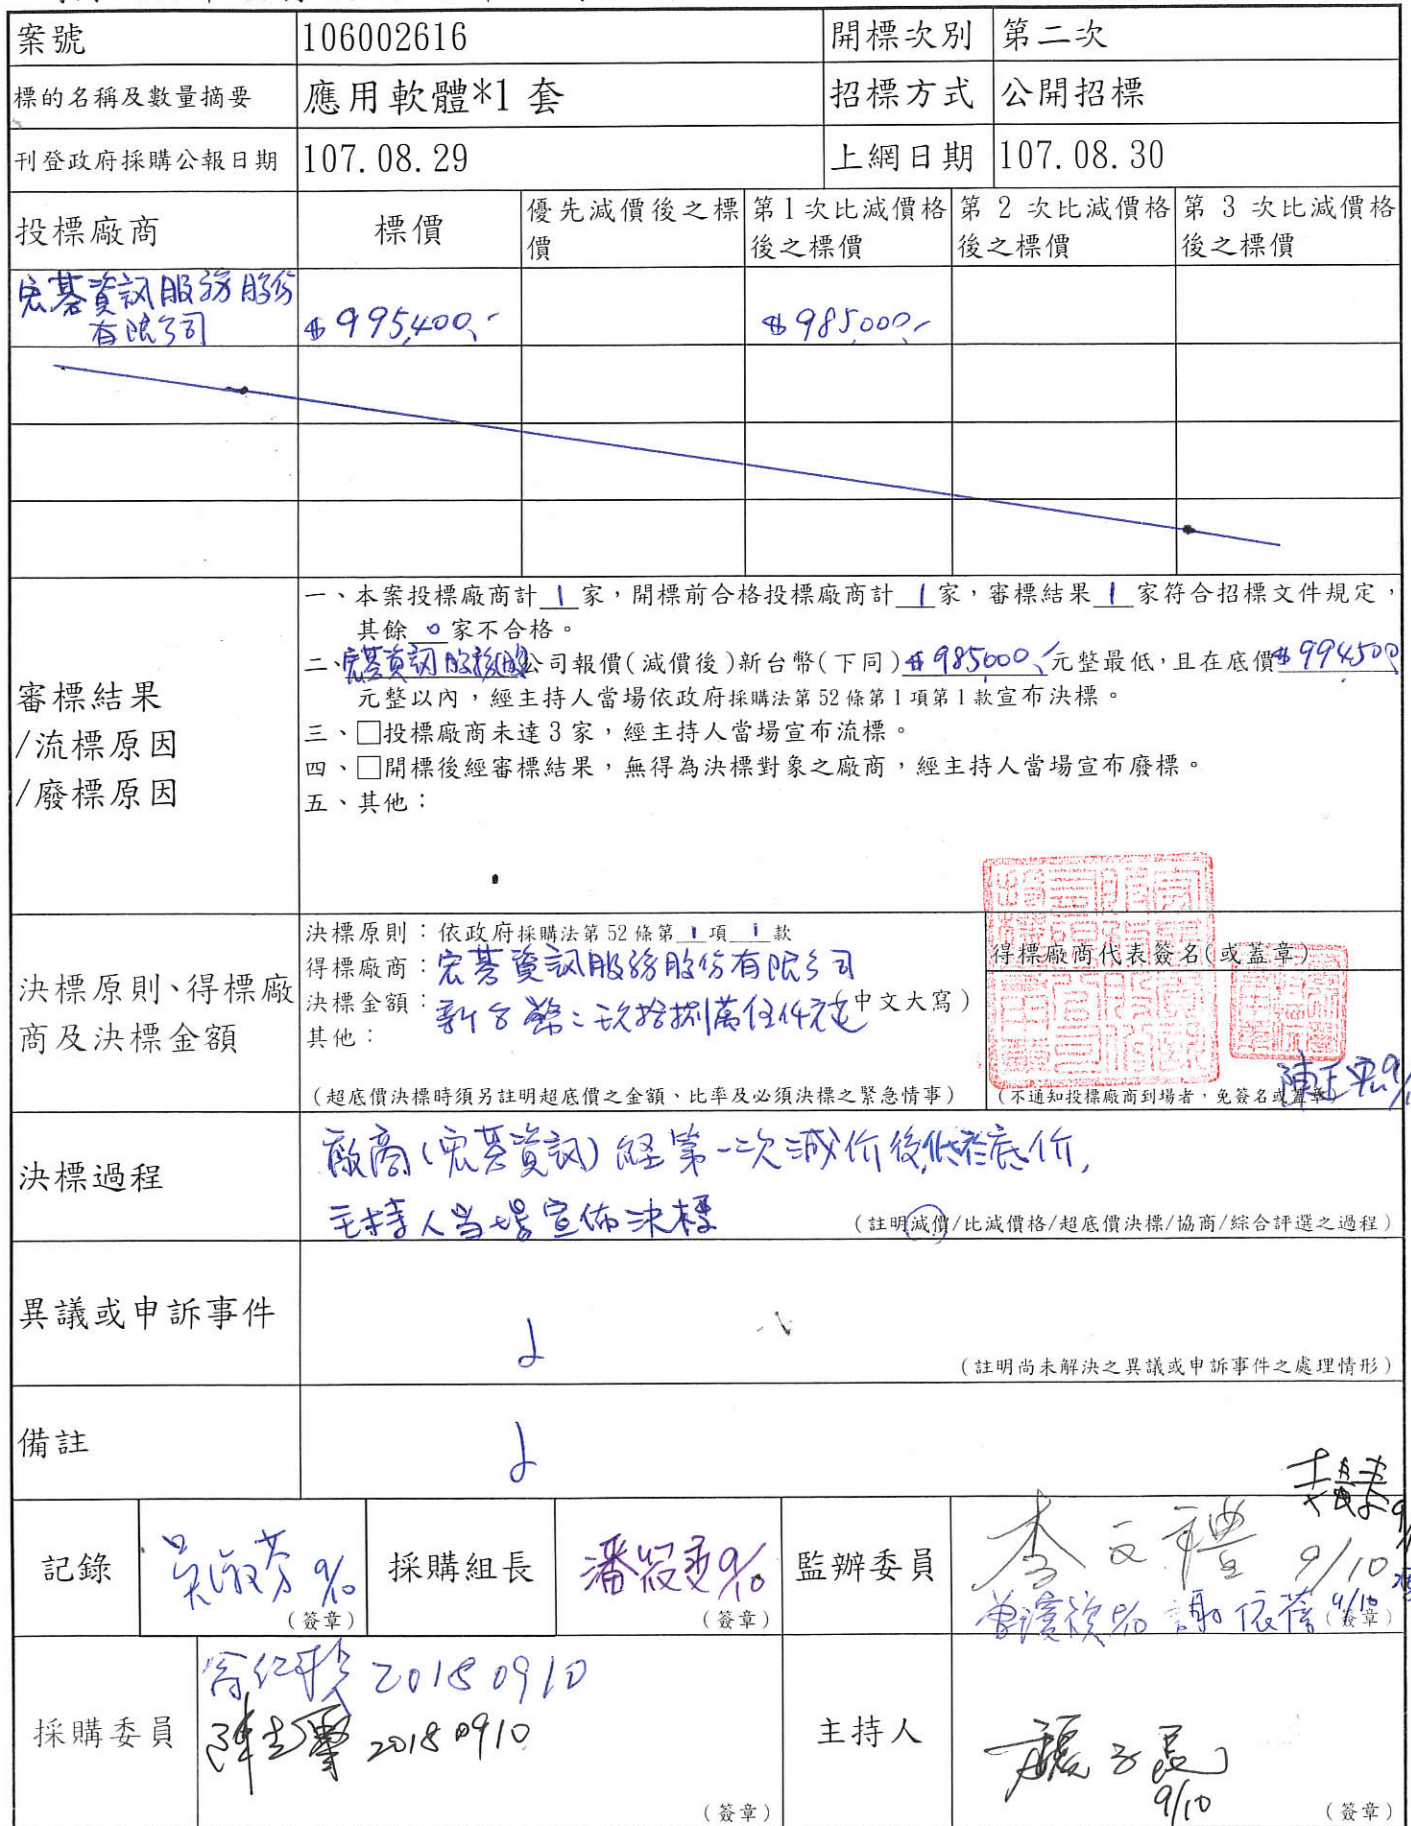 案號 106002616 開標次別 第二次
標的名稱及數量摘要 應用軟體*1 套 招標方式 公開招標
刊登政府採購公報日期 107.08.29 上網日期 107.08.30
投標廠商 標價 優先減價後之標價 第1次比減價格後之標價 第 2 次比減價格後之標價 第 3 次比減價格後之標價
宏碁資訊服務股份
有限公司 $995,400,- $985,000,-
審標結果
/流標原因
/廢標原因
一、本案投標廠商計 1 家，開標前合格投標廠商計 1 家，審標結果 1 家符合招標文件規定，
其餘 0 家不合格。
二、宏碁資訊服務股公司報價(減價後)新台幣(下同)$985,000,-元整最低，且在底價$994,500
元整以內，經主持人當場依政府採購法第52條第1項第1款宣布決標。
三、□投標廠商未達3家，經主持人當場宣布流標。
四、□開標後經審標結果，無得為決標對象之廠商，經主持人當場宣布廢標。
五、其他：
決標原則、得標廠
商及決標金額
決標原則：依政府採購法第52條第 1 項 1 款
得標廠商：宏碁資訊服務股份有限公司
決標金額：新台幣：玖拾捌萬伍仟元(中文大寫)
其他：
(超底價決標時須另註明超底價之金額、比率及必須決標之緊急情事)
得標廠商代表簽名(或蓋章)
(不通知投標廠商到場者，免簽名或蓋章)
決標過程
廠商(宏碁資訊)經第一次減价後,低於底价,
主持人当場宣佈決標
(註明減價/比減價格/超底價決標/協商/綜合評選之過程)
異議或申訴事件
(註明尚未解決之異議或申訴事件之處理情形)
備註
記錄 9/10 (簽章) 採購組長 9/10 (簽章) 監辦委員 李文禮 9/10
謝依蓓 9/10 (簽章)
採購委員 20180910
20180910 (簽章)
主持人 9/10 (簽章)